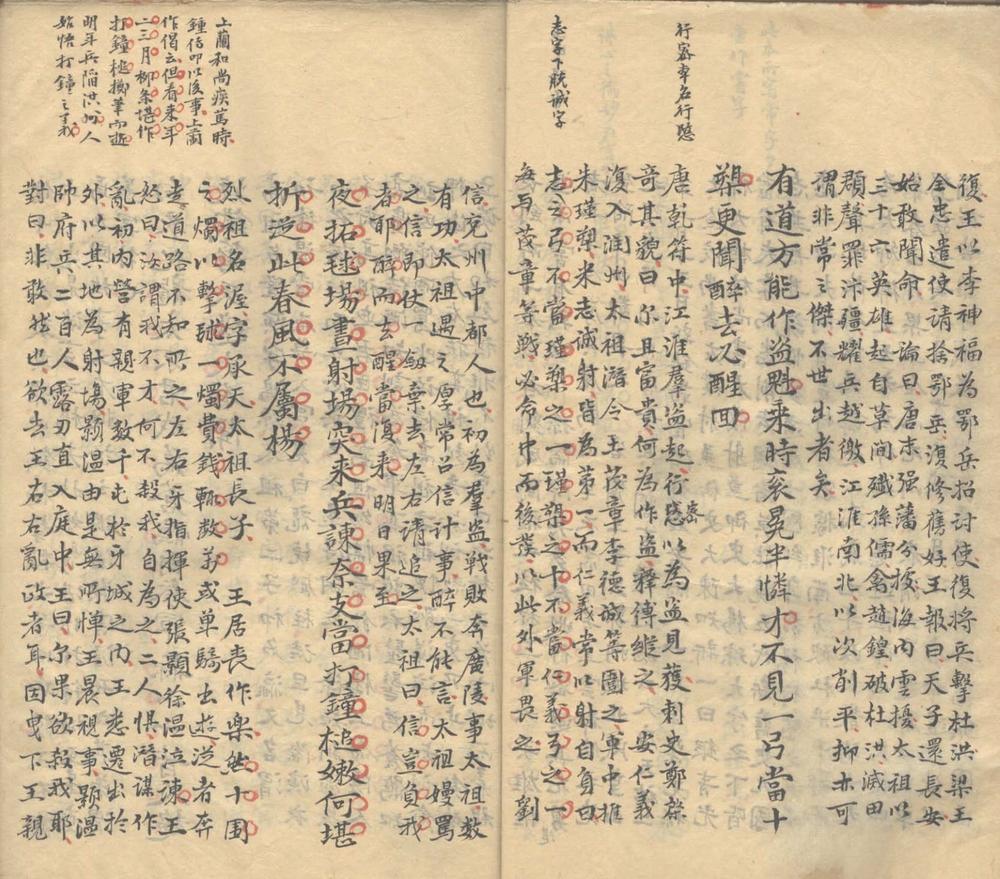 行密本名行愍
志字下脫誠字
復王以李神福為鄂岳招討使復將兵擊杜洪梁王
全忠遣使請捨鄂岳復修舊好王報曰天子還長安
始敢聞命論曰唐末强藩分據海內雲擾太祖以
三十六英雄起自草間殲孫儒禽趙鍠破杜洪滅田
頵聲罪汴疆耀兵越徼江淮南北以次削平抑亦可
謂非常之傑不世出者矣
有道方能作盜魁乘時袞冕半憐才不見一弓當十
槊更聞醉去必醒回
唐乾符中江淮羣盜起行愍以為盜見獲刺史鄭棨
密
奇其貌曰尔且富貴何為作盜釋縛縱之安仁義
復入潤州太祖潛令王茂章李德誠等圍之軍中推
朱瑾槊米志誠射皆為第一而仁義常以射自負曰
志之弓十不當瑾槊之一瑾槊之十不當仁義弓之一
每与茂章等戰必命中而後發以此外軍畏之劉
上蘭和尚疾篤時
鍾傳叩以後事上蘭
作偈云但看來年
二三月柳条堪作
打鐘槌擲筆而逝
明年兵陷洪州人
始悟打鐘之義
信兗州中都人也初為羣盜戰敗奔廣陵事太祖数
有功太祖遇之厚常召信計事醉不能言太祖嫚罵
之信即仗一劍棄去左右請追之太祖曰信豈負我
者耶醉而去醒當復來明日果至
夜拓毬場晝射場突來兵諫奈支當打鐘槌嫩何堪
折從此春風不屬楊
烈祖名渥字承天太祖長子王居喪作樂然十圍
之燭以擊毬一燭費錢輒数萬或单騎出遊從者奔
走道路不知所之左右牙指揮使張顥徐温泣諫王
怒曰汝謂我不才何不殺我自為之二人惧潛謀作
亂初內營有親軍数千屯於牙城之內王悉遷出於
外以其地為射塲顥温由是無所憚王晨視事顥温
帥府兵二百人露刃直入庭中王曰尔果欲殺我耶
對曰非敢然也欲去王左右亂政者耳因曳下王親